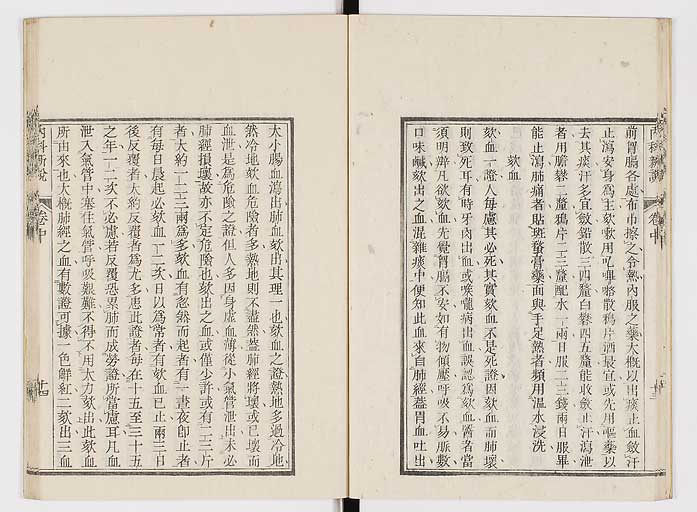 前胃腸各處布巾擦之令熱內服之藥大槪以出痰止血斂汗
止瀉安身爲主欬嗽用吐嗶哈散鴉片酒最宜或先用嘔藥以
去其痰汗多宜斂鉛散三四釐白礬四五釐能收斂止汗瀉泄
者用膽礬二釐鴉片二三釐配水一兩日服一二三錢兩日服畢
能止瀉肺痛者貼斑蝥膏藥面與手足熱者頻用溫水浸洗
欬血
欬血一證人每慮其必死其實欬血不是死證因欬血而肺壞
則致死耳有時牙肉出血或喉嚨病出血誤認爲欬血醫者當
須明辨凡欲欬血先覺胃腸不安如有物傾壓呼吸不易脈數
口味鹹欬出之血混雜痰中便知此血來自肺經蓋胃血吐出
大小腸血瀉出肺血欬出其理一也欬血之證熱地多過冷地
然冷地欬血危險者多熱地則不盡然蓋肺經將壞或已壞而
血泄是爲危險之證但人多因身虛血薄從小氣管泄出未必
肺經損壞故亦不定危險也欬出之血或僅少許或有一二斤
者大約一二三兩爲多欬血有忽然而起者有一晝夜卽止者
有每日晨起必欬血一二次日以爲常者有欬血已止兩三日
後反覆者大約反覆者爲尤多患此證者每在十五至三十五
之年一二次不必慮若反覆恐累肺而成勞證所當慮耳凡血
泄入氣管中塞住氣管呼吸艱難不得不用大力欬出此欬血
所由來也大槪肺經之血有數證可據一色鮮紅二欬出三血
內科新說
卷中
十四